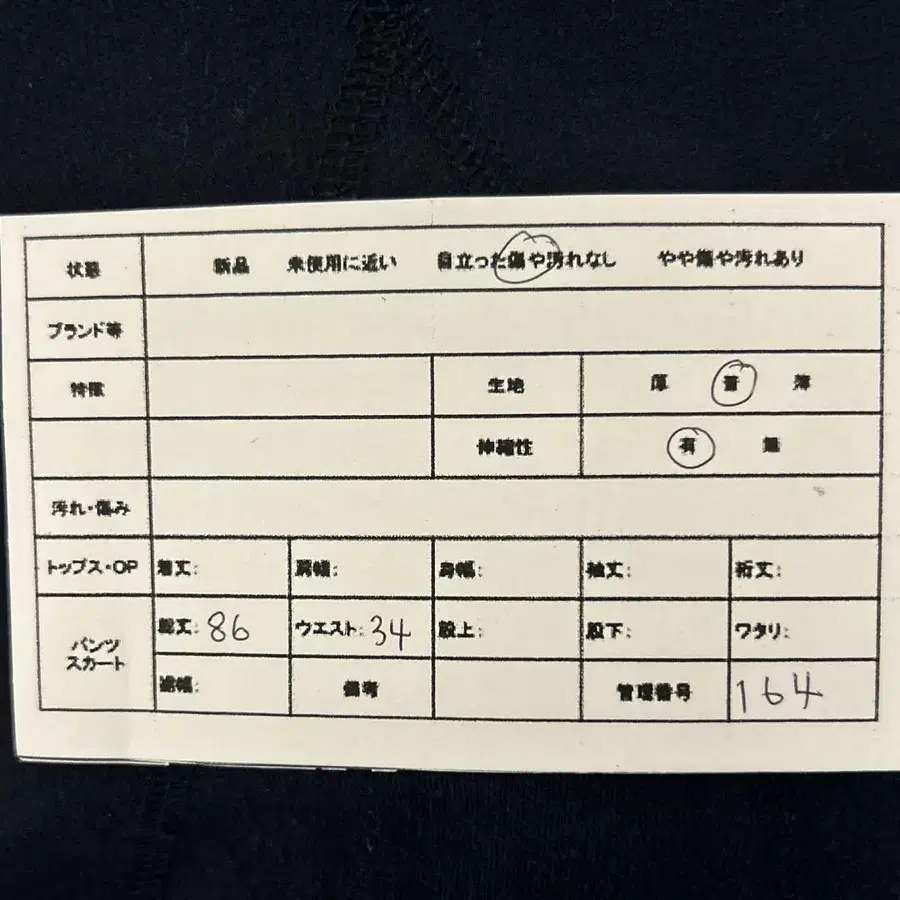 状態 新品 未使用に近い 目立った傷や汚れなし やや傷や汚れあり
ブランド等
特徴 生地 厚 普 薄
伸縮性 有 無
汚れ・傷み
トップス・OP 着丈: 肩幅: 身幅: 袖丈: 裄丈:
パンツ スカート 総丈: 86 ウエスト: 34 股上: 股下: ワタリ:
裾幅: 備考 管理番号 164